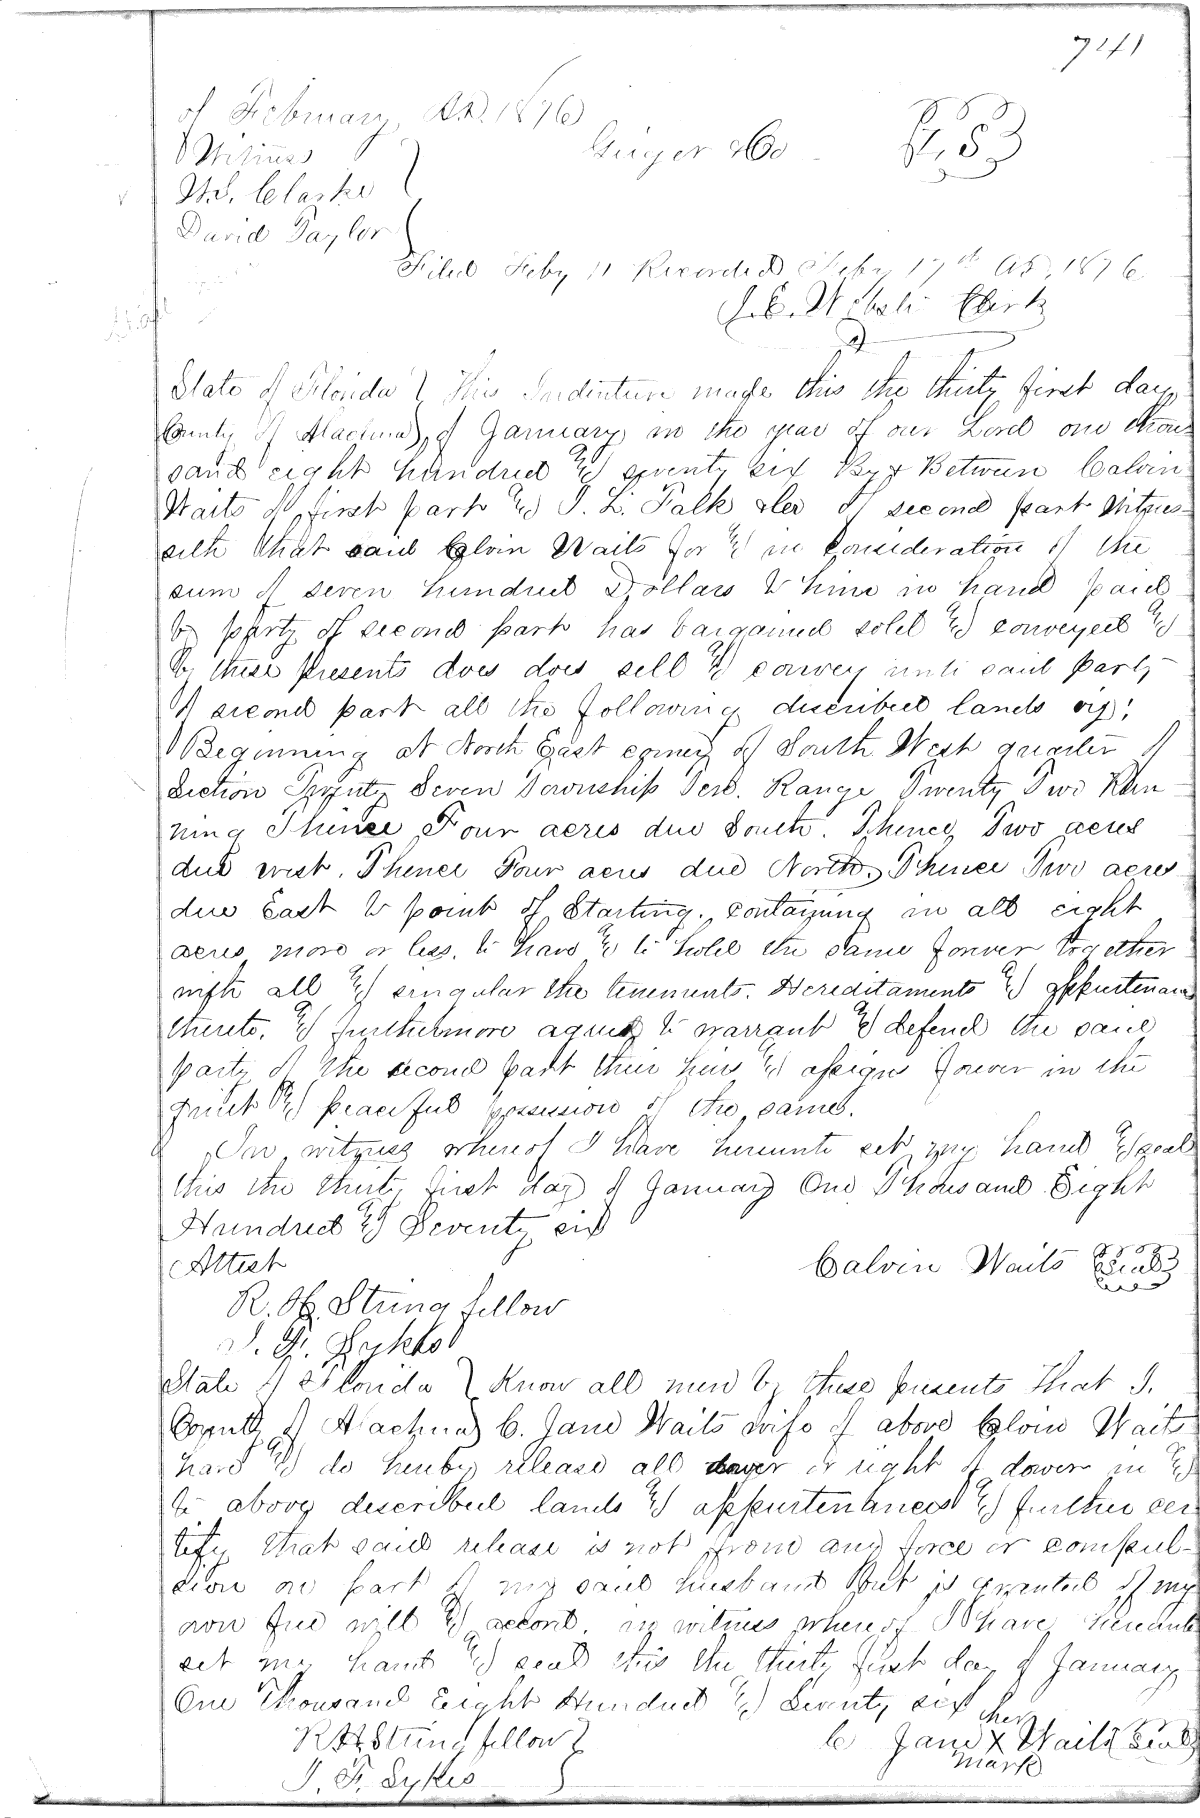 741
of February, A.D. 1876
Witness
Geiger & Co
L.S.
W.S. Clarke
David Taylor
Filed Feby 11 Recorded Feby 17th A.D. 1876
J.C. Clerk
State of Florida } This Indenture made this the thirty first day
County of Alachua } of January in the year of our Lord one thou-
sand eight hundred & seventy six By & Between Calvin
Waits of first part & of second part Witnes-
seth that said Calvin Waits for & in Consideration of the
sum of seven hundred Dollars to him in hand paid
by party of second part has bargained sold & conveyed &
by these presents does does sell & convey unto said party
of second part all the following described lands viz;
Beginning at North East corner of South West quarter of
Section Twenty Seven Township Ten. Range Twenty Two Run-
ning Thence Four acres due South. Thence Two acres
due west. Thence Four acres due North. Thence Two acres
due East to point of Starting. containing in all eight
acres more or less. to have & to hold the same forever together
with all & singular the tenements. Hereditaments & appurtenances
thereto. & furthermore agrees to warrant & defend the said
party of the second part their heirs & assigns forever in the
quiet & peaceful possession of the same.
In witness whereof I have hereunto set my hand & seal
this the thirty first day of January One Thousand Eight
Hundred & Seventy six
Attest
Calvin Waits Seal
R. H. Stringfellow
J. F. Sykes
State of Florida } Know all men by these presents That I.
County of Alachua } C. Jane Waits wife of above Calvin Waits
have & do hereby release all dower or right of dower in &
to above described lands & appurtenances & further cer-
tify that said release is not from any force or compul-
sion on part of my said husband But is granted of my
own free will & accord. in witness whereof I have hereunto
set my hand & seal this the thirty first day of January
One Thousand Eight Hundred & Seventy six
R H Stringfellow }
C Jane her X mark Waits Seal
J. F. Sykes